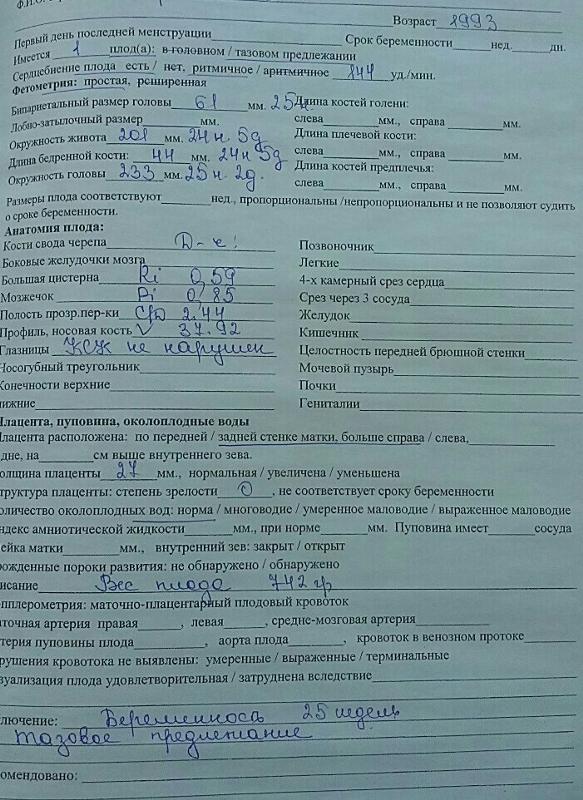 Ф.И.О.
Возраст 1993
Первый день последней менструации Срок беременности нед. дн.
Имеется 1 плод(а): в головном / тазовом предлежании
Сердцебиение плода есть / нет, ритмичное / аритмичное 144 уд./мин.
Фетометрия: простая, расширенная
Бипариетальный размер головы 61 мм. 25н Длина костей голени:
Лобно-затылочный размер мм. слева мм., справа мм.
Окружность живота 201 мм. 24н. 5д Длина плечевой кости:
Длина бедренной кости: 44 мм. 24н 5д слева мм., справа мм.
Окружность головы 233 мм. 25н. 2д. Длина костей предплечья:
слева мм., справа мм.
Размеры плода соответствуют нед., пропорциональны /непропорциональны и не позволяют судить
о сроке беременности.
Анатомия плода:
Кости свода черепа Позвоночник
Боковые желудочки мозга Легкие
Большая цистерна Ri 0,59 4-х камерный срез сердца
Мозжечок Pi 0,85 Срез через 3 сосуда
Полость прозр.пер-ки С/Д 2.44 Желудок
Профиль, носовая кость V 37.92 Кишечник
Глазницы КСК не нарушен Целостность передней брюшной стенки
Носогубный треугольник Мочевой пузырь
Конечности верхние Почки
нижние Гениталии
Плацента, пуповина, околоплодные воды
Плацента расположена: по передней / задней стенке матки, больше справа / слева,
дне, на см выше внутреннего зева.
олщина плаценты 27 мм., нормальная / увеличена / уменьшена
труктура плаценты: степень зрелости 0, не соответствует сроку беременности
оличество околоплодных вод: норма / многоводие / умеренное маловодие / выраженное маловодие
ндекс амниотической жидкости мм., при норме мм. Пуповина имеет сосуда
ейка матки мм., внутренний зев: закрыт / открыт
рожденные пороки развития: не обнаружено / обнаружено
писание Вес плода 742 гр
опплерометрия: маточно-плацентарный плодовый кровоток
аточная артерия правая , левая , средне-мозговая артерия
терия пуповины плода , аорта плода , кровоток в венозном протоке
рушения кровотока не выявлены: умеренные / выраженные / терминальные
зуализация плода удовлетворительная / затруднена вследствие
лючение: Беременность 25 недель
тазовое предлежание
омендовано: